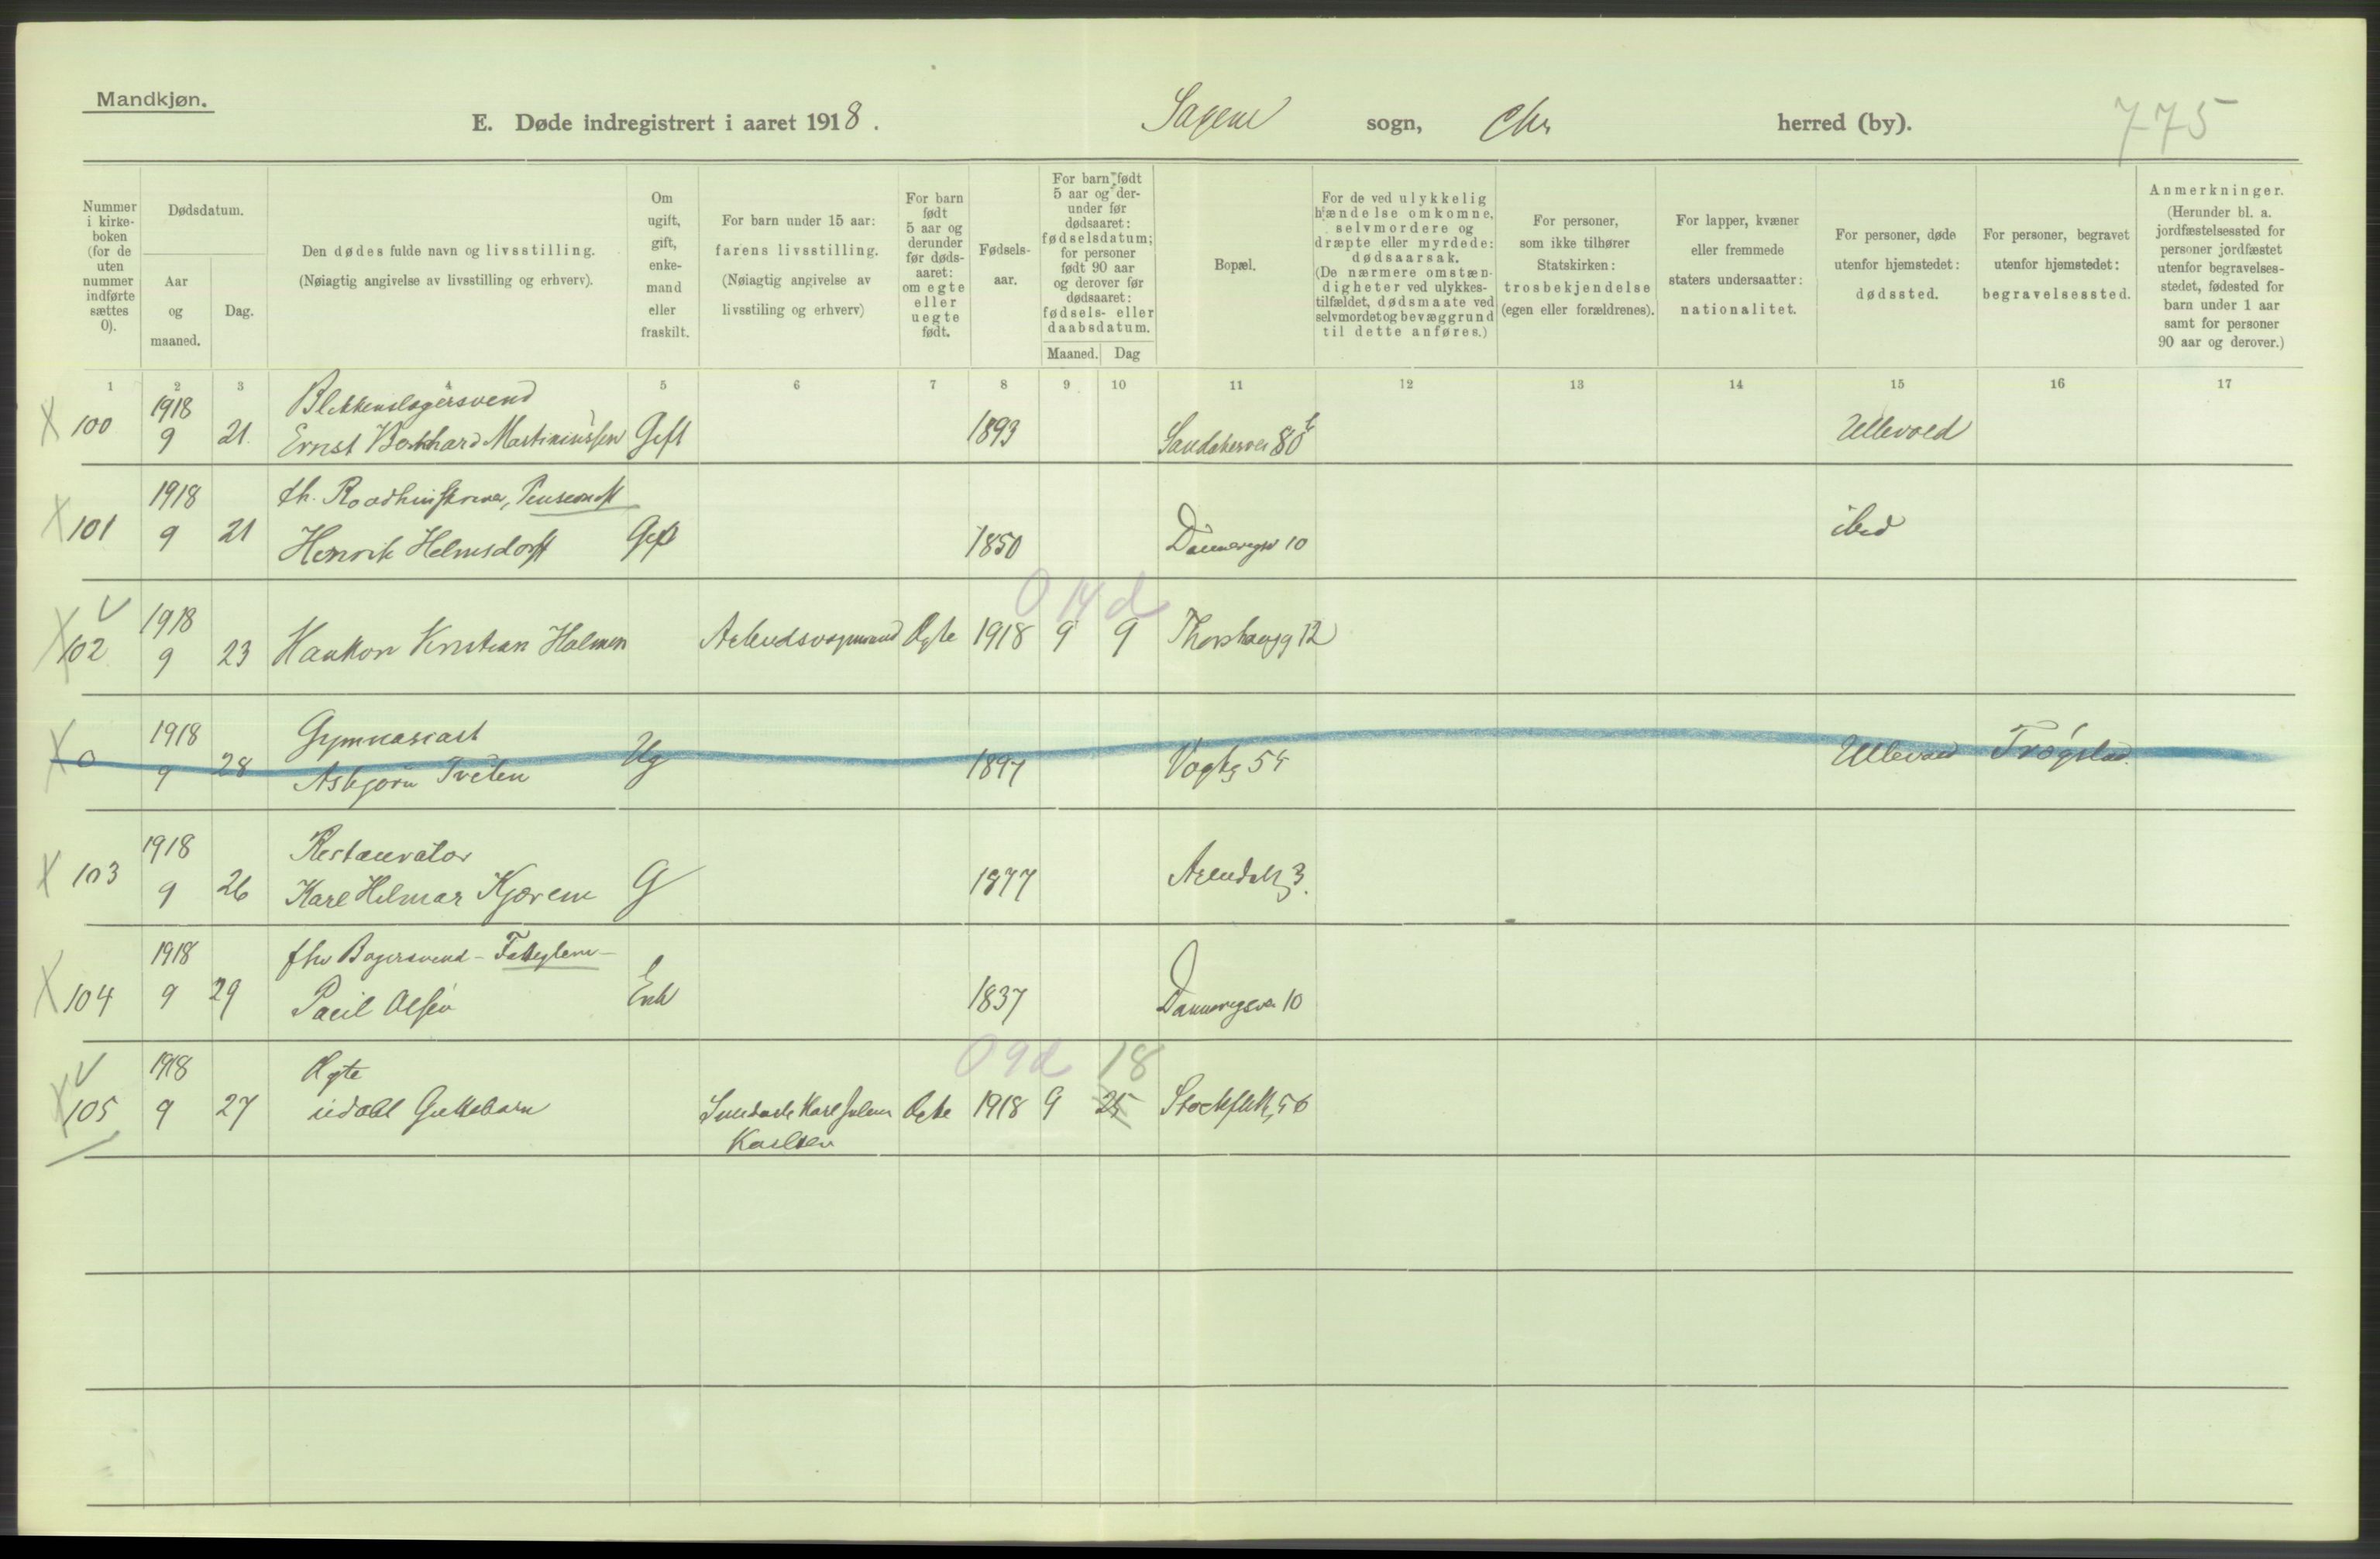 Mandkjøn.
E. Døde indregistrert i aaret 1918. Sagene sogn, Chr herred (by). 775
Nummer i kirke-boken (for de uten nummer indførte sættes 0).
Dødsdatum.
Aar og maaned.
Dag.
Den dødes fulde navn og livsstilling.
(Nøiagtig angivelse av livsstilling og erhverv).
Om ugift, gift, enke-mand eller fraskilt.
For barn under 15 aar:
farens livsstilling.
(Nøiagtig angivelse av livsstiling og erhverv)
For barn født 5 aar og derunder før døds-aaret: om egte eller uegte født.
Fødsels-aar.
For barn født 5 aar og der-under før dødsaaret: fødselsdatum; for personer født 90 aar og derover før dødsaaret: fødsels- eller daabsdatum.
Maaned. Dag
Bopæl.
For de ved ulykkelig hændelse omkomne, selvmordere og dræpte eller myrdede: dødsaarsak. (De nærmere omstæn-digheter ved ulykkes-tilfældet, dødsmaate ved selvmordet og bevæggrund til dette anføres.)
For personer, som ikke tilhører Statskirken: trosbekjendelse (egen eller forældrenes).
For lapper, kvæner eller fremmede staters undersaatter: nationalitet.
For personer, døde utenfor hjemstedet: dødssted.
For personer, begravet utenfor hjemstedet: begravelsessted.
Anmerkninger.
(Herunder bl. a. jordfæstelsessted for personer jordfæstet utenfor begravelses-stedet, fødested for barn under 1 aar samt for personer 90 aar og derover.)
1 2 3 4 5 6 7 8 9 10 11 12 13 14 15 16 17
X 100 1918 Blikkenslagersvend
9 21. Ernst Martiniussen Gift 1893 Sandakervei 80 b Ullevold
X 101 1918 fh. Pensionist
9 21 Henrik Helmsdorff Gift 1850 Dannevigsv 10 ibid
0 14 d
X V 102 1918
9 23 Haakon Kristian Holmen Arbeidsvognmand Ægte 1918 9 9 12
X 0 1918 Gymnasiast
9 28 Asbjørn Tveten Ug 1897 Vogtsg 54 Ullevold Trøgstad.
X 103 1918 Restauratør
9 26 Karl Hilmar Kjærem G 1877 Arendalsg 3.
X 104 1918 fhv Bagersvend - Fattiglem
9 29 Paul Olsen Enk 1837 Dannevigsvei 10
0 9 d 18
X V 105 1918 Ægte
9 27 udøbt Guttebarn Karl Ægte 1918 9 25 56
Karlsen